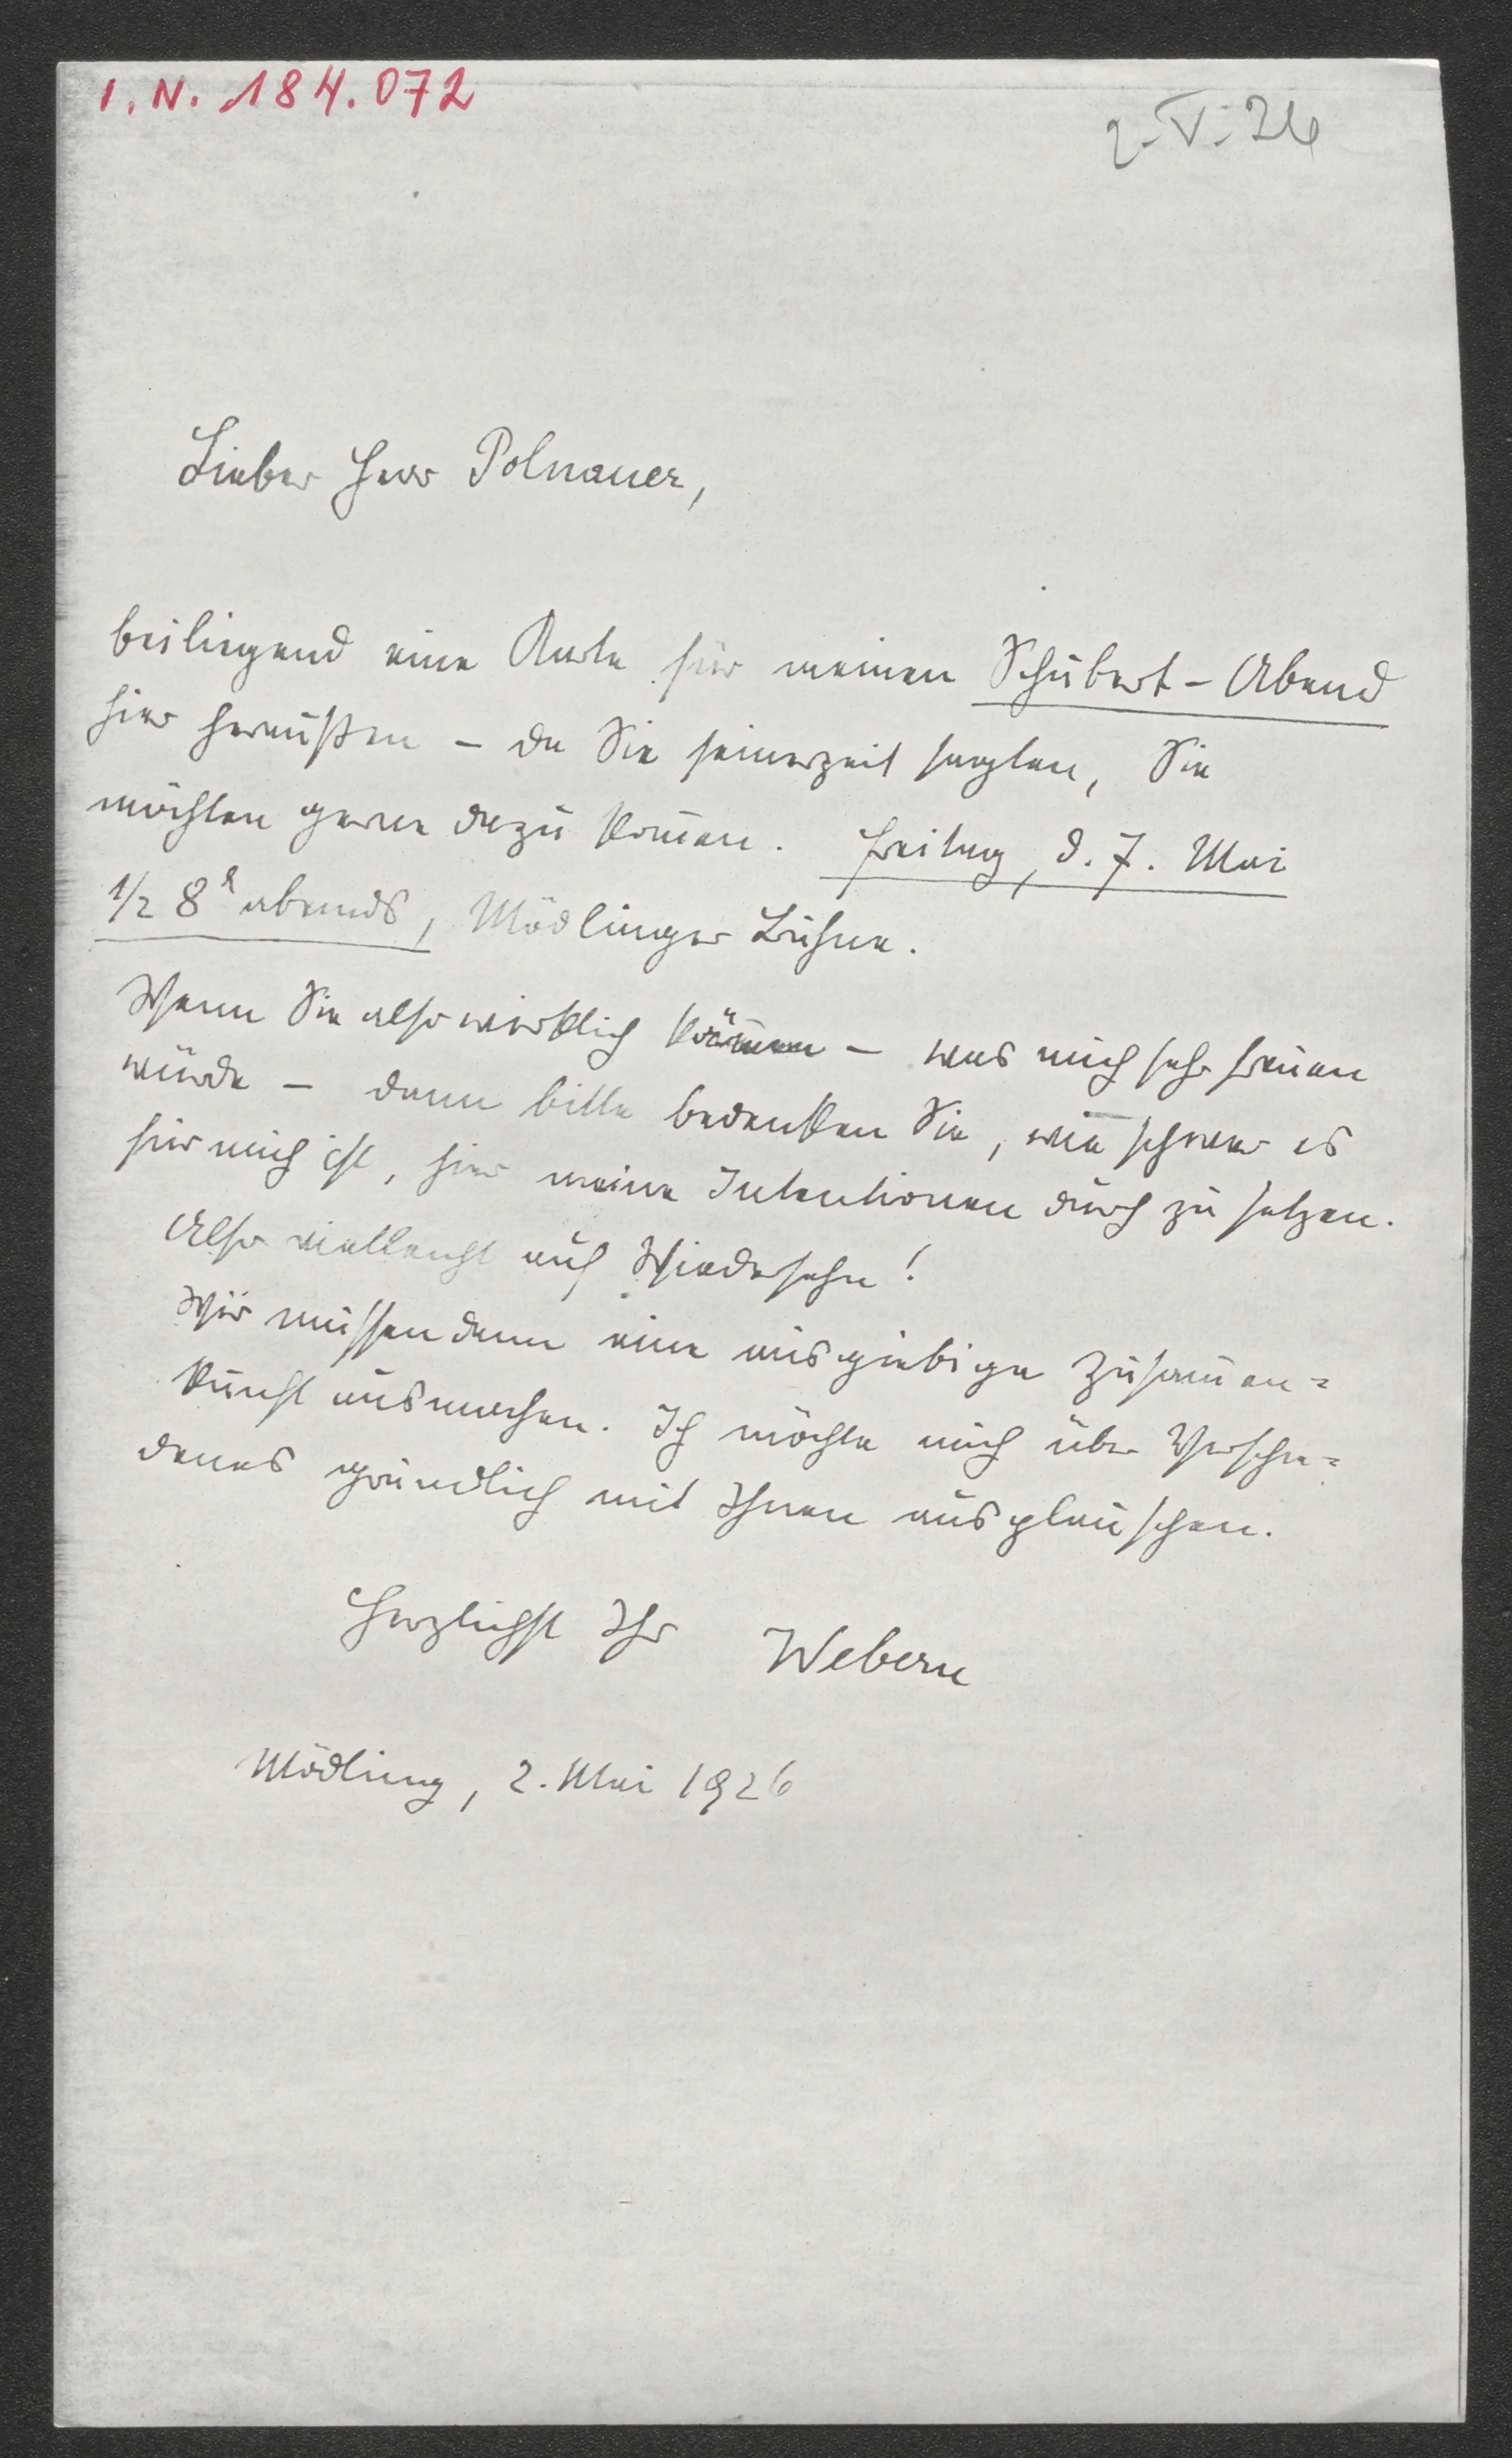 I.N. 184.072
2.V.26
Lieber Herr Polnauer,
beiliegend eine Karte für meinen Schubert-Abend
hier heraußen – da Sie seinerzeit sagten, Sie
möchten gerne dazu kom̄en. Freitag, d. 7. Mai
½ 8ʰ abends, Mödlinger Bühne.
Wenn Sie also wirklich kämen – was mich sehr freuen
würde – dann bitte bedenken Sie, wie schwer es
für mich ist, hier meine Intentionen durch zu setzen.
Also vielleicht auf Wiedersehn!
Wir müssen dann eine ausgiebige Zusam̄en=
kunft ausmachen. Ich möchte mich über Verschie=
denes gründlich mit Ihnen ausplauschen.
Herzlichst Ihr Webern
Mödling, 2. Mai 1926